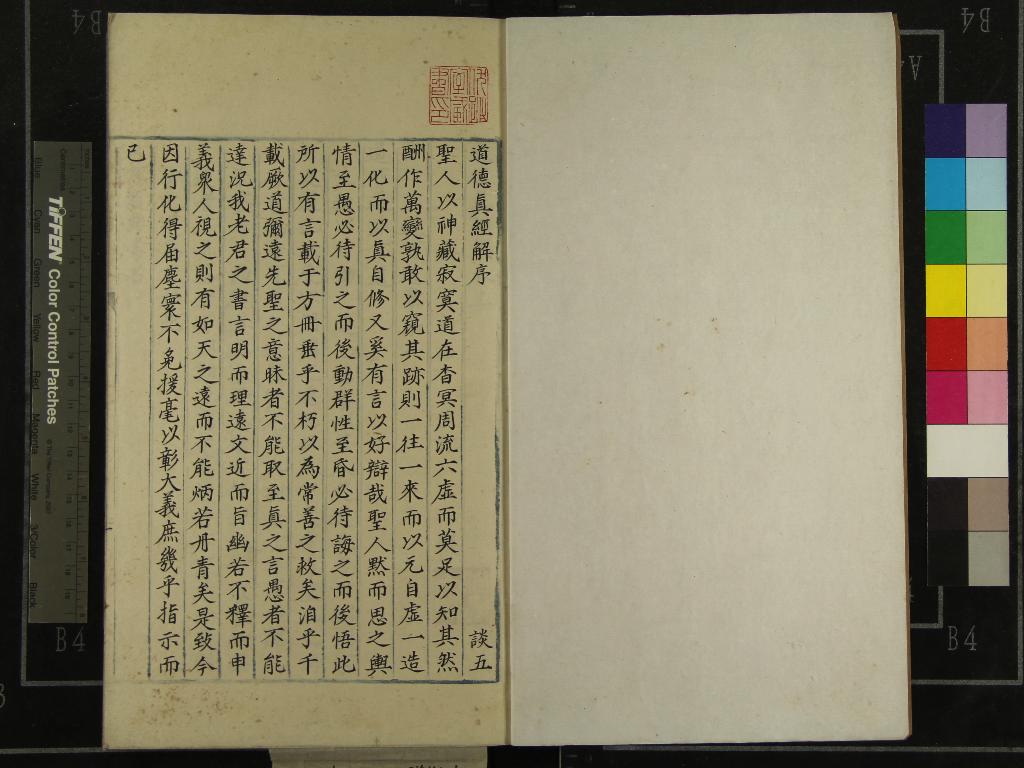 道德真經解序
談五
聖人以神藏寂寞道在杳冥周流六虛而莫足以知其然
酬作萬變孰敢以窺其跡則一往一來而以元自虛一造
一化而以真自修又奚有言以好辯哉聖人默而思之輿
情至愚必待引之而後動群性至昏必待誨之而後悟此
所以有言載于方冊垂乎不朽以為常善之救矣洎乎千
載厥道彌遠先聖之意昧者不能取至真之言愚者不能
達況我老君之書言明而理遠文近而旨幽若不釋而申
義眾人視之則有如天之遠而不能炳若丹青矣是致今
因行化得届塵寰不免援毫以彰大義庶幾乎指示而
已
B4
B4
B4
B4
A4
TIFFEN Color Control Patches
Blue
Cyan
Green
Yellow
Red
Magenta
White
3/Color
Black